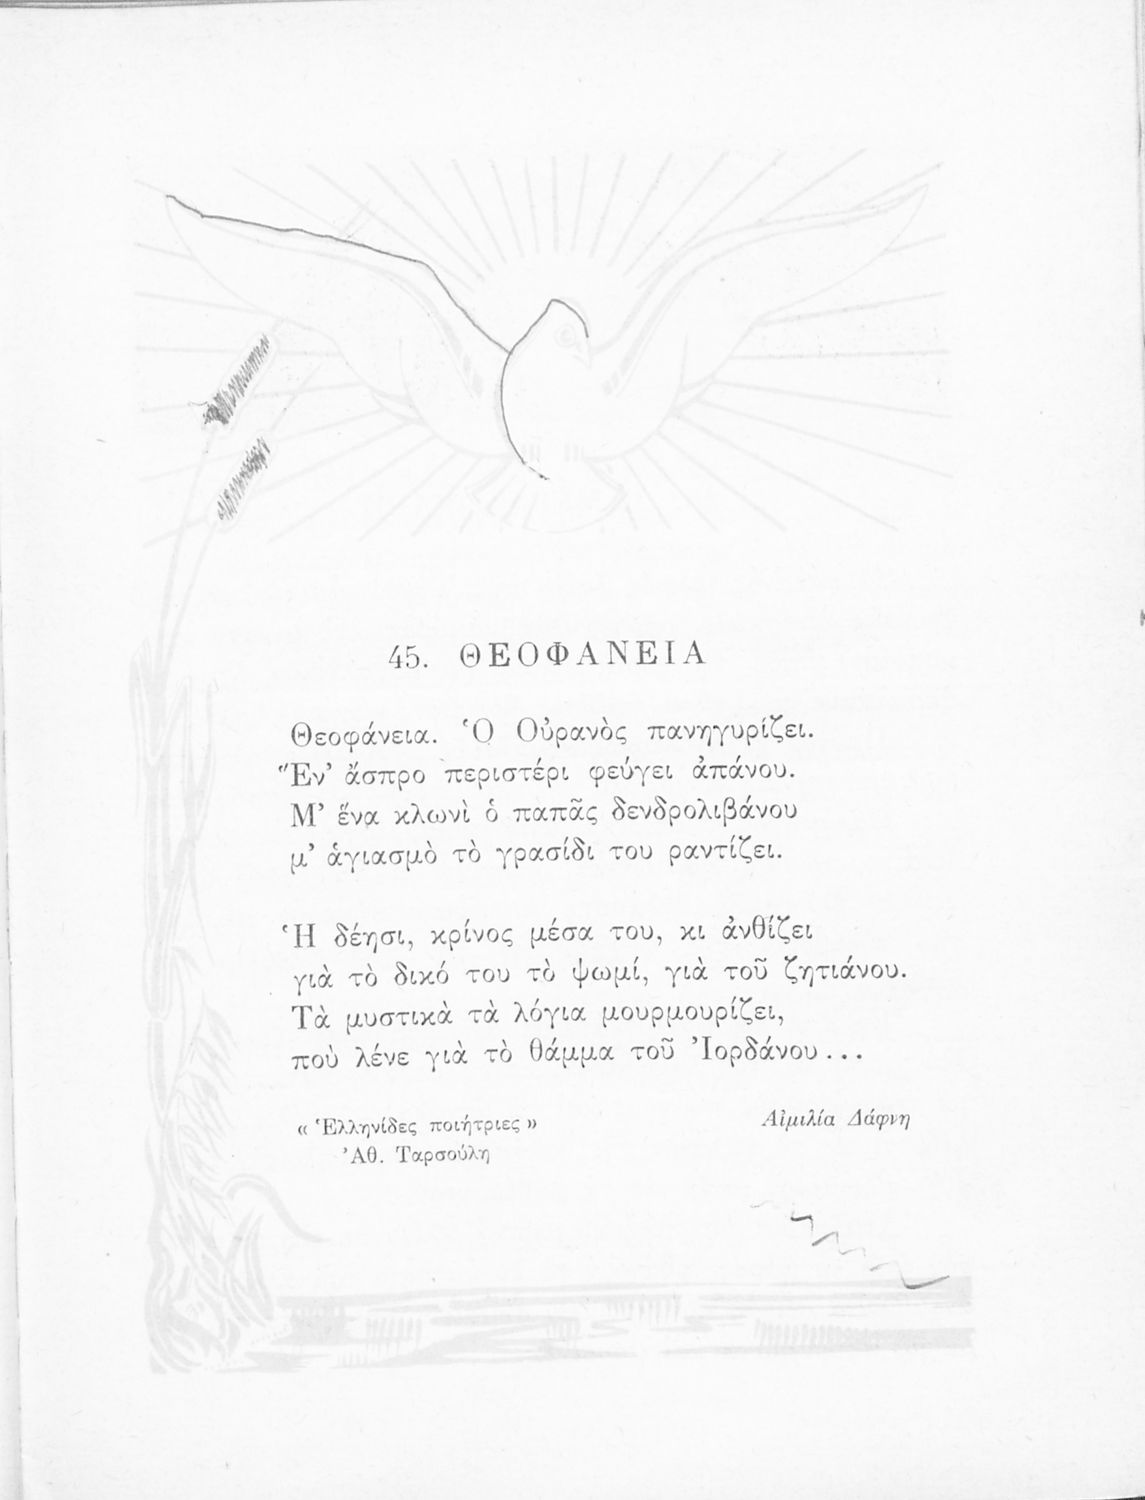 45. ΘΕΟΦΑΝΕΙΑ
Θεοφάνεια. Ὁ Οὐρανὸς πανηγυρίζει.
Ἕν’ ἄσπρο περιστέρι φεύγει ἀπάνου.
Μ’ ἕνα κλωνὶ ὁ παπᾶς δενδρολιβάνου
μ’ ἁγιασμὸ τὸ γρασίδι του ραντίζει.
Ἡ δέησι, κρίνος μέσα του, κι ἀνθίζει
γιὰ τὸ δικό του τὸ ψωμί, γιὰ τοῦ ζητιάνου.
Τὰ μυστικὰ τὰ λόγια μουρμουρίζει,
ποὺ λένε γιὰ τὸ θάμμα τοῦ Ἰορδάνου...
« Ἑλληνίδες ποιήτριες » Αἰμιλία Δάφνη
Ἀθ. Ταρσούλη